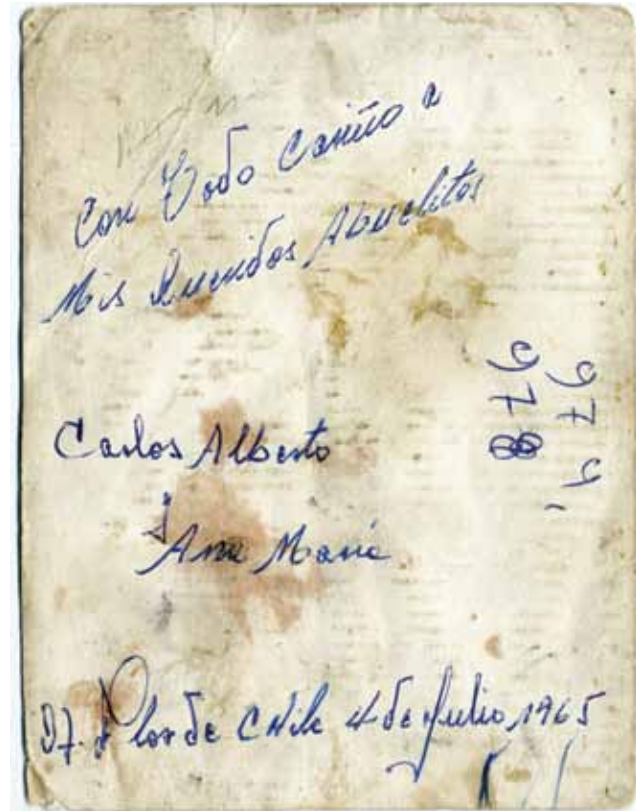 Con Todo Cariño a
Mis Queridos Abuelitos
Carlos Alberto
y
Ana María
Flor de Chile 4 de Julio 1965
978
974